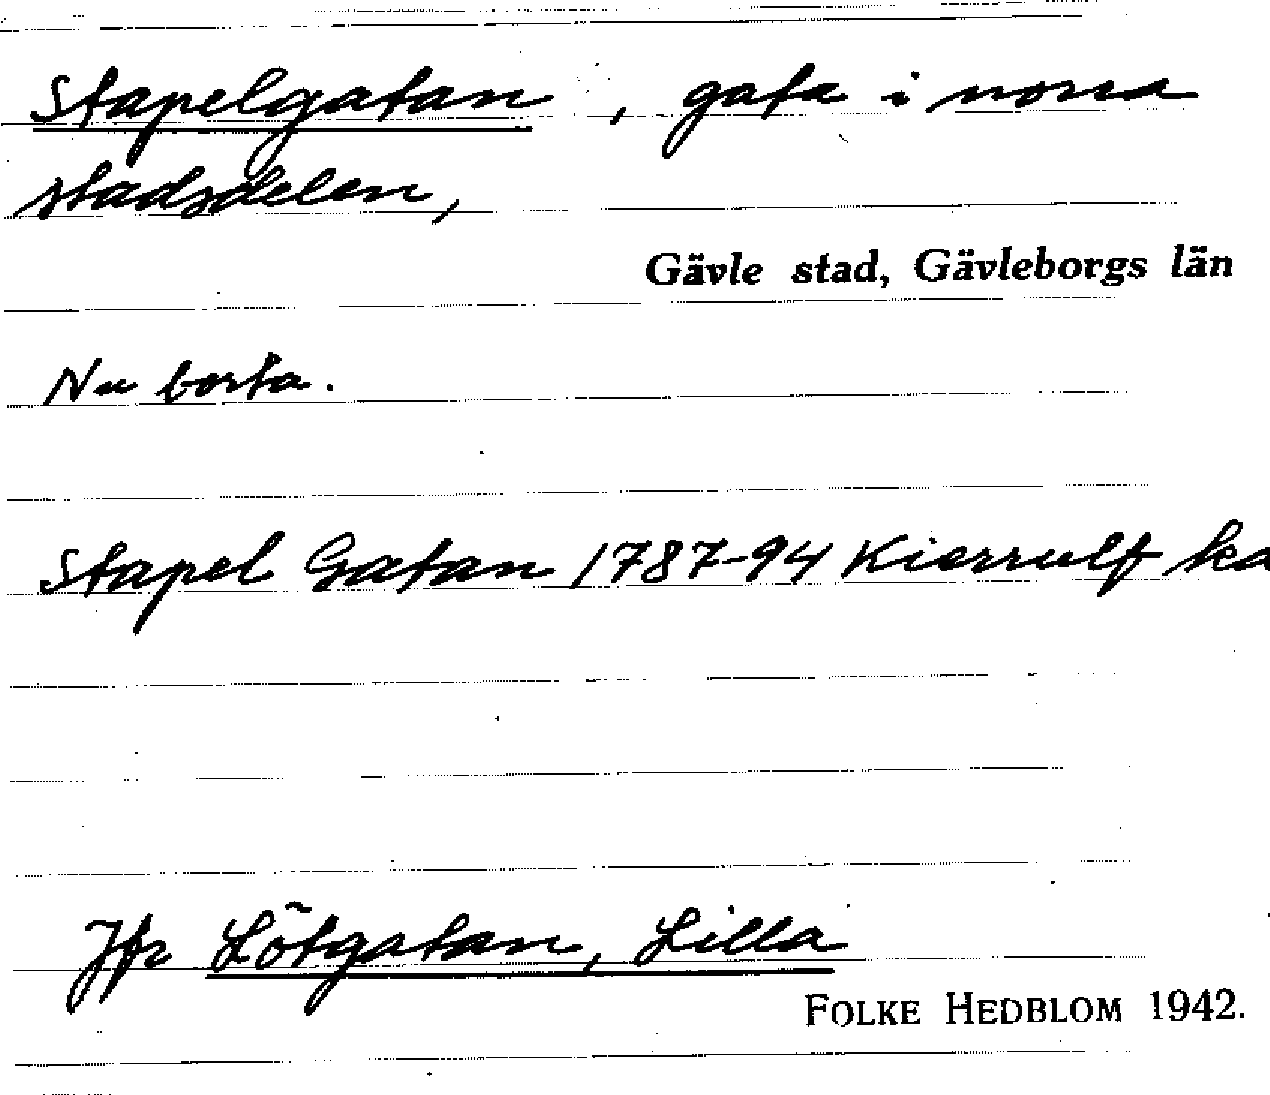 Stapelgatan, gata i norra
stadsdelen,
Gävle stad, Gävleborgs län
Nu borta.
Stapel Gatan 1787-94 Kierrulf ka
Jfr Lötgatan, Lilla
FOLKE HEDBLOM 1942.